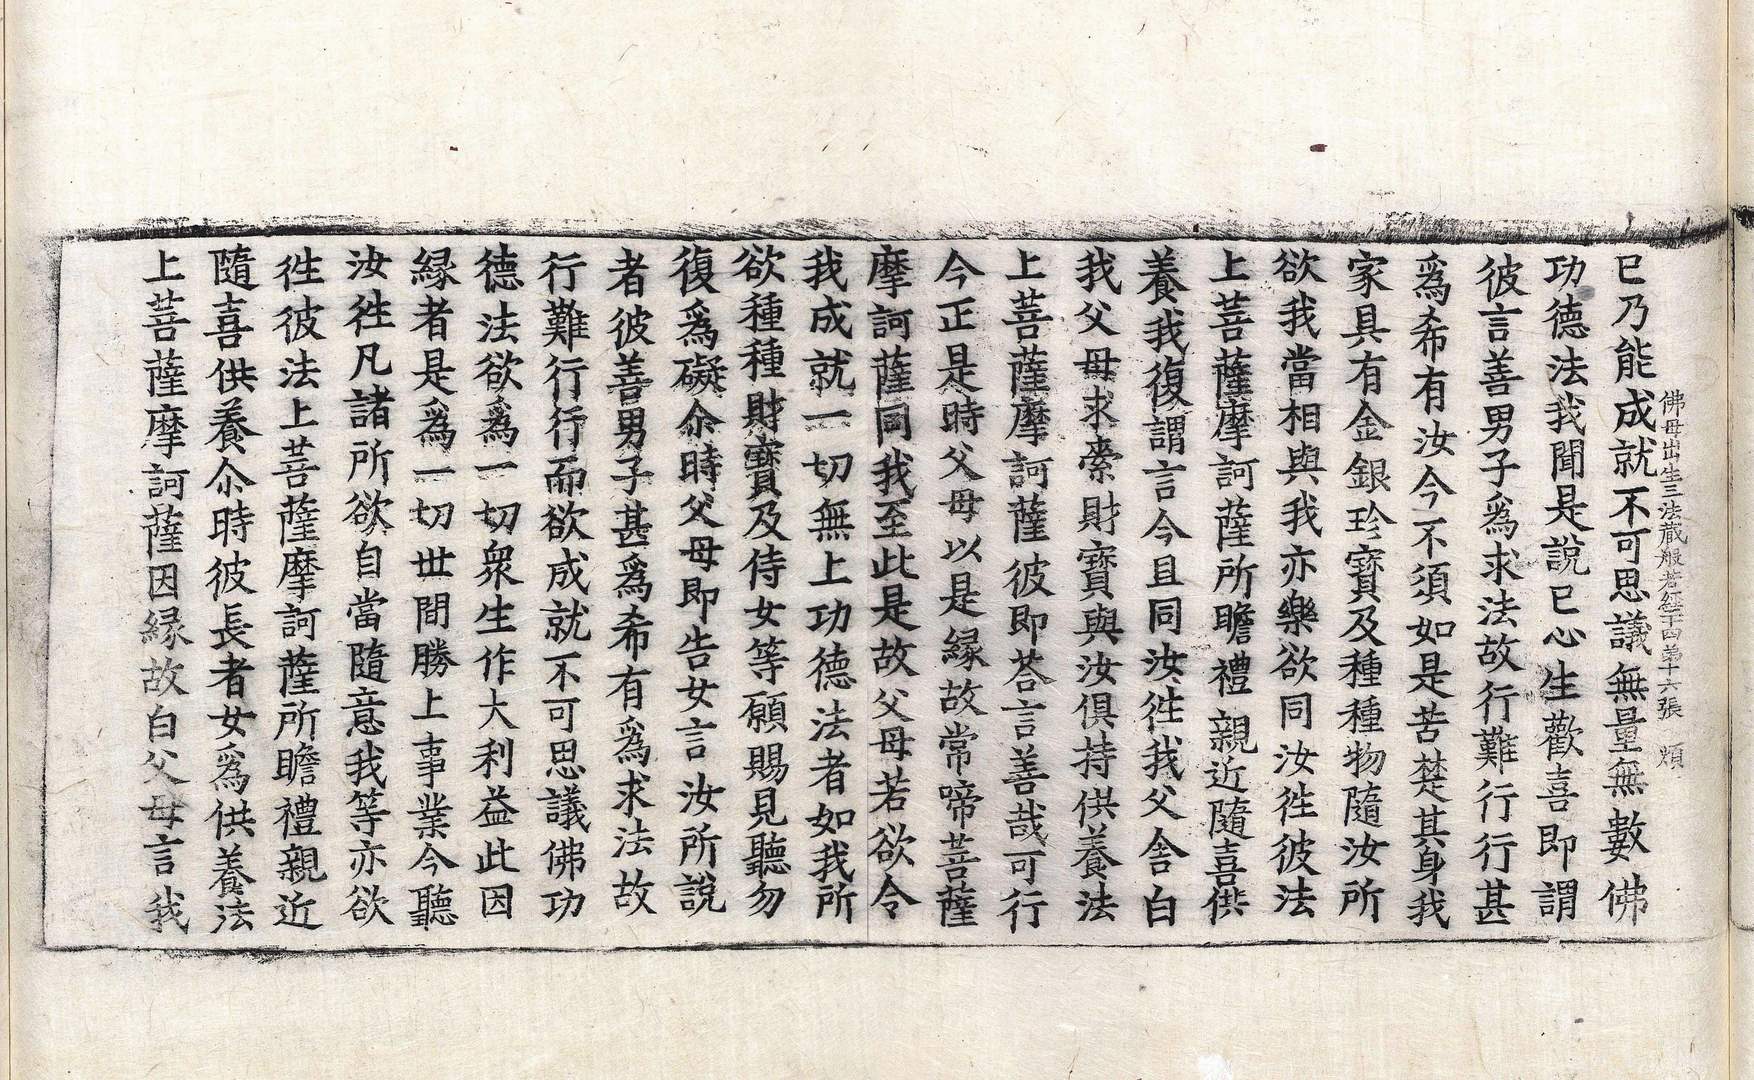 佛母出生三法藏般若經二十四第十六張 煩
已乃能成就不可思議無量無數佛
功德法我聞是說已心生歡喜即謂
彼言善男子爲求法故行難行行甚
爲希有汝今不須如是苦楚其身我
家具有金銀珎寶及種種物隨汝所
欲我當相與我亦樂欲同汝徃彼法
上菩薩摩訶薩所瞻禮親近隨喜供
養我復謂言今且同汝徃我父舎白
我父母求索財寶與汝俱持供養法
上菩薩摩訶薩彼即荅言善哉可行
今正是時父母以是縁故常啼菩薩
摩訶薩同我至此是故父母若欲令
我成就一切無上功德法者如我所
欲種種財寶及侍女等願賜見聽勿
復爲礙尒時父母即告女言汝所說
者彼善男子甚爲希有爲求法故
行難行行而欲成就不可思議佛功
德法欲爲一切衆生作大利益此因
縁者是爲一切世間勝上事業今聽
汝徃凡諸所欲自當隨意我等亦欲
徃彼法上菩薩摩訶薩所瞻禮親近
隨喜供養尒時彼長者女爲供養法
上菩薩摩訶薩因縁故白父母言我